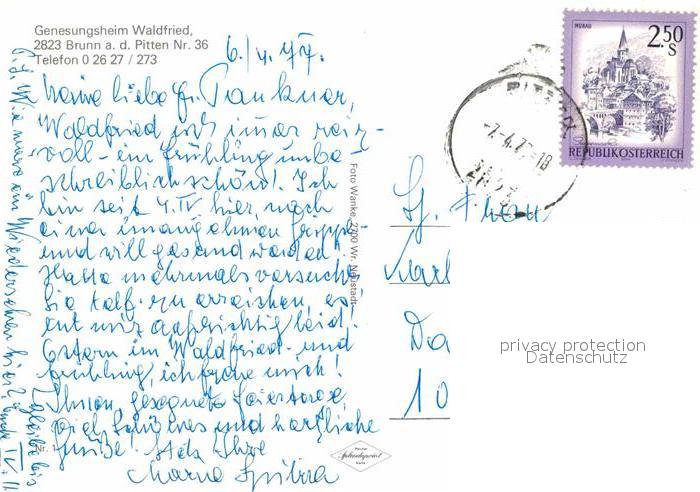 Genesungsheim Waldfried,
2823 Brunn a. d. Pitten Nr. 36
Telefon 0 26 27 / 273
6./4. 77.
Meine liebe Fr. Tankner,
Waldfried ist immer reiz-
voll - ein Frühling unbe-
schreiblich schön! Ich
bin seit 4. IV hier, nach
einer unangenehmen Grippe
und will gesund werden!
Hatte mehrmals versucht
Sie telf. zu erreichen, es
tut mir aufrichtig leid!
Ostern im Waldfried - und
Frühling, ich freue mich!
Ihnen, gesegnete Feiertage,
viel Schönes und herzliche
Grüße! Stets Ihre
Maria
Nr. 1
Foto Wanke, 2700 Wr. Neustadt
MURAU
2.50
S
REPUBLIK ÖSTERREICH
PITTEN
-7.-4.77-18
Frau
Karl
Da
10
privacy protection
Datenschutz